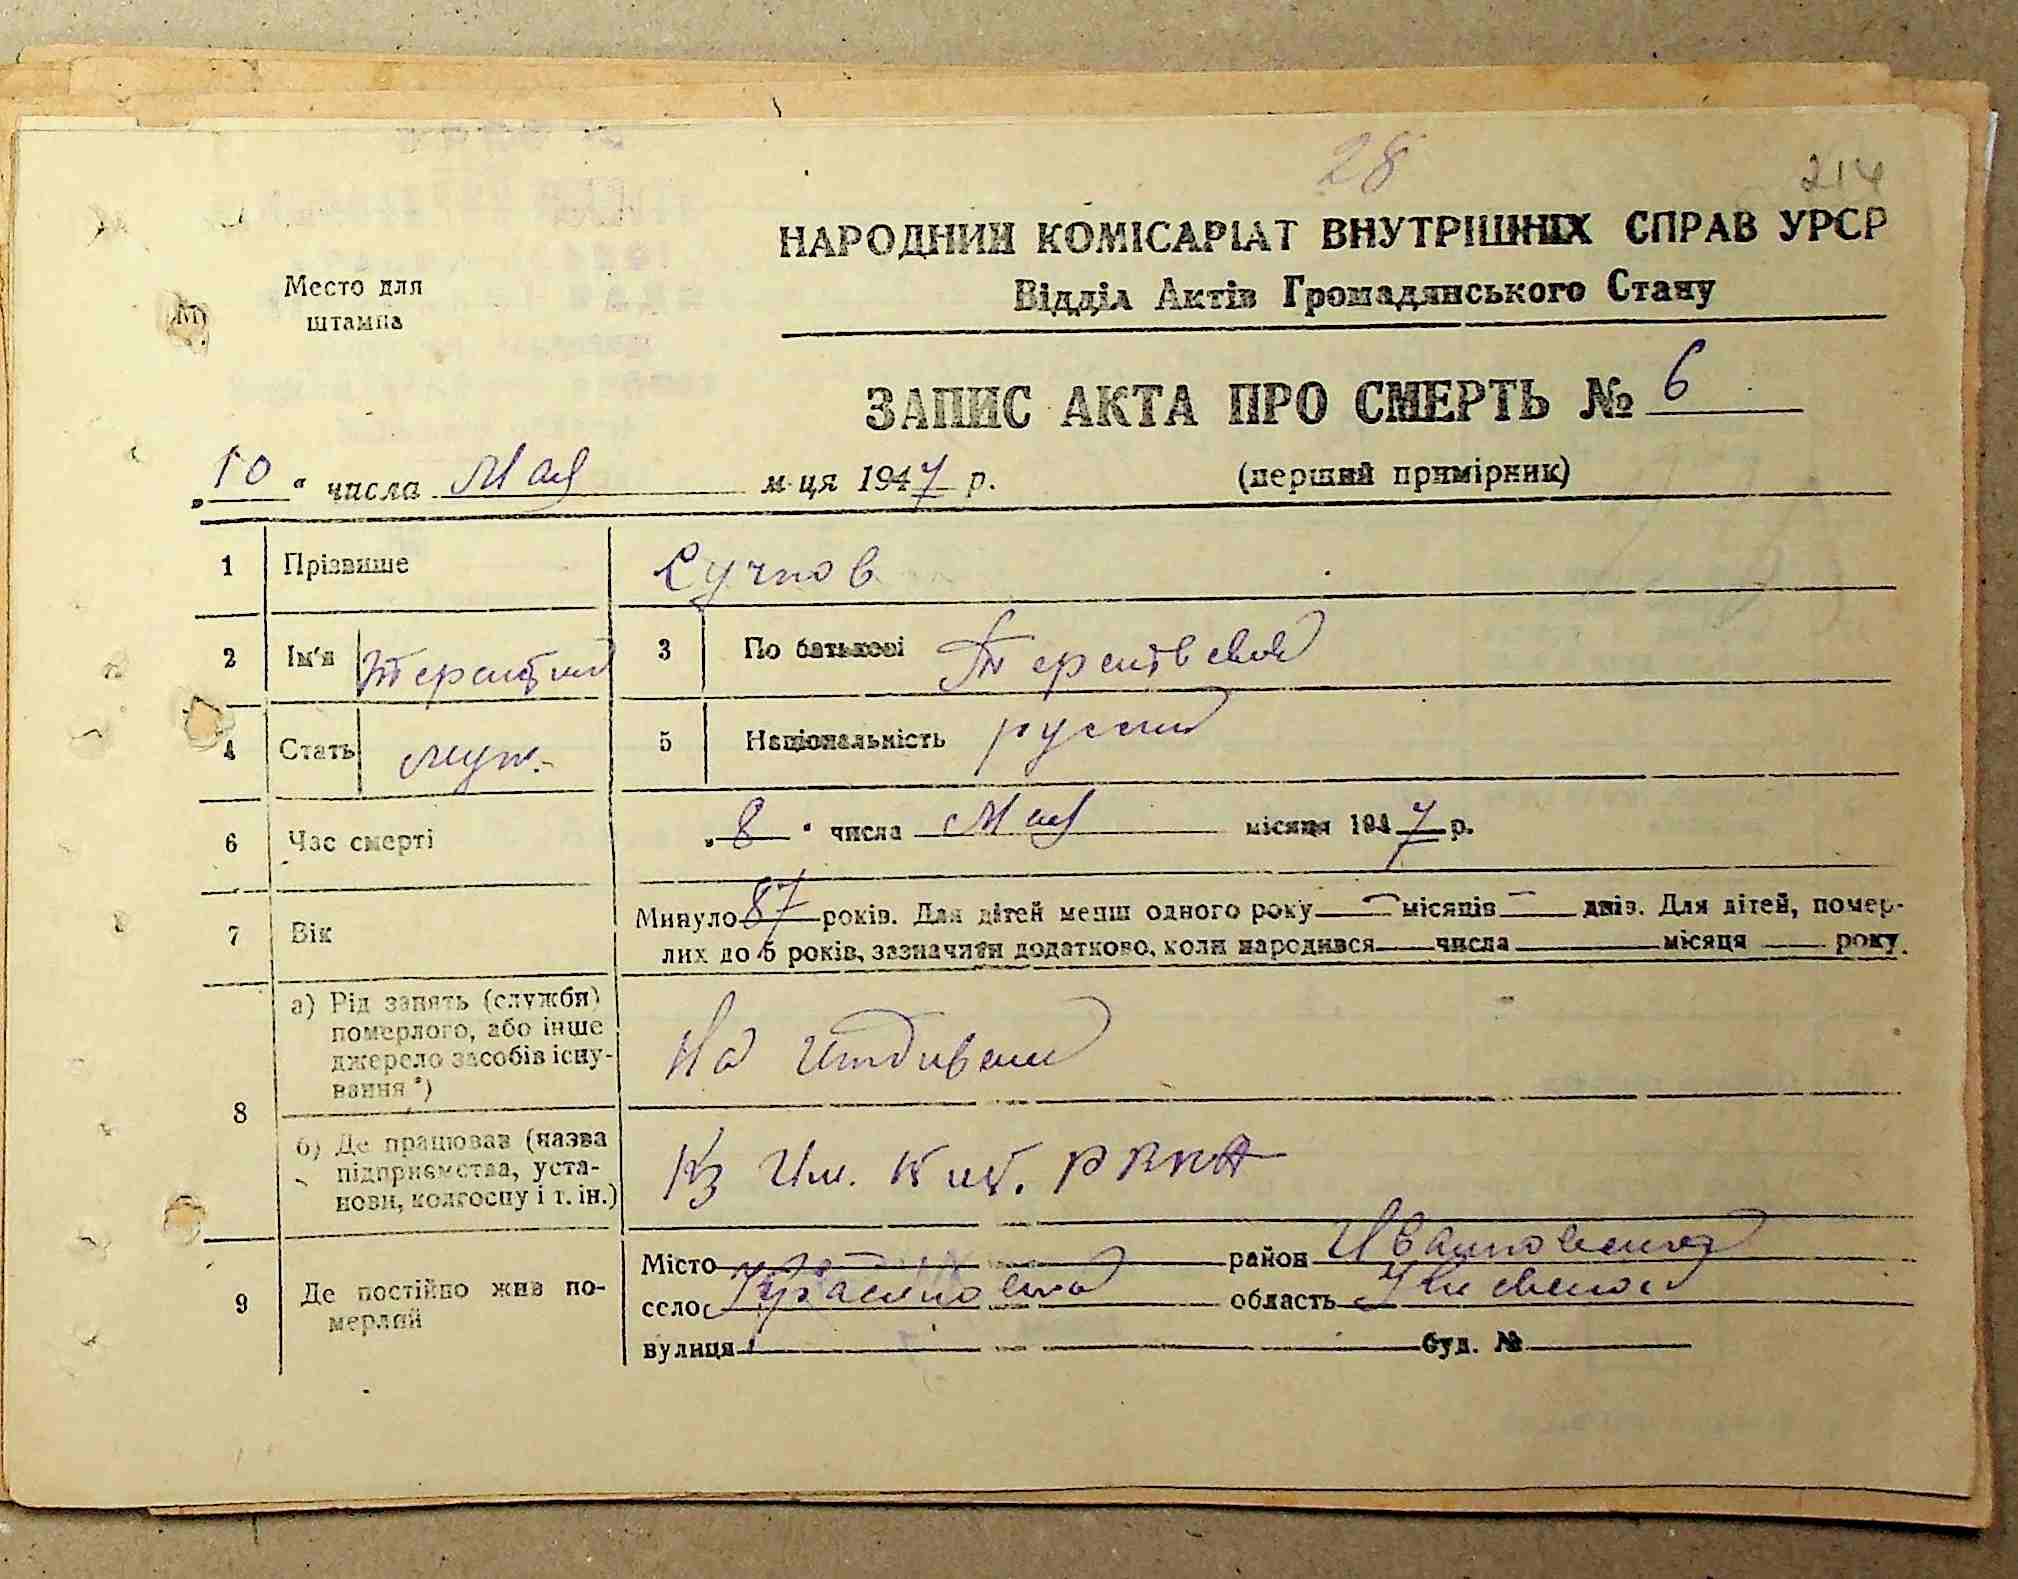 28
214
НАРОДНИЙ КОМІСАРІАТ ВНУТРІШНІХ СПРАВ УРСР
Відділ Актів Громадянського Стану
Место для
штампа
ЗАПИС АКТА ПРО СМЕРТЬ № 6
„10“ числа Мая м-ця 1947 р. (перший примірник)
1 Прізвише Сучков
2 Ім'я Терентий 3 По батькові
4 Стать муж. 5 Національність русский
6 Час смерті „8“ числа Мая місяця 1947 р.
7 Вік Минуло 87 років. Для дітей менш одного року — місяців — днів. Для дітей, помер-
лих до 5 років, зазначити додатково, коли народився числа місяця року.
8 а) Рід занять (служби)
померлого, або інше
джерело засобів існу-
вання *)
На иждивении
б) Де працював (назва
підприємства, уста-
нови, колгоспу і т. ін.)
Кз Им. РККА
9 Де постійно жив по-
мерлий
Місто район Иванковский
село область Киевской
вулиця буд. №